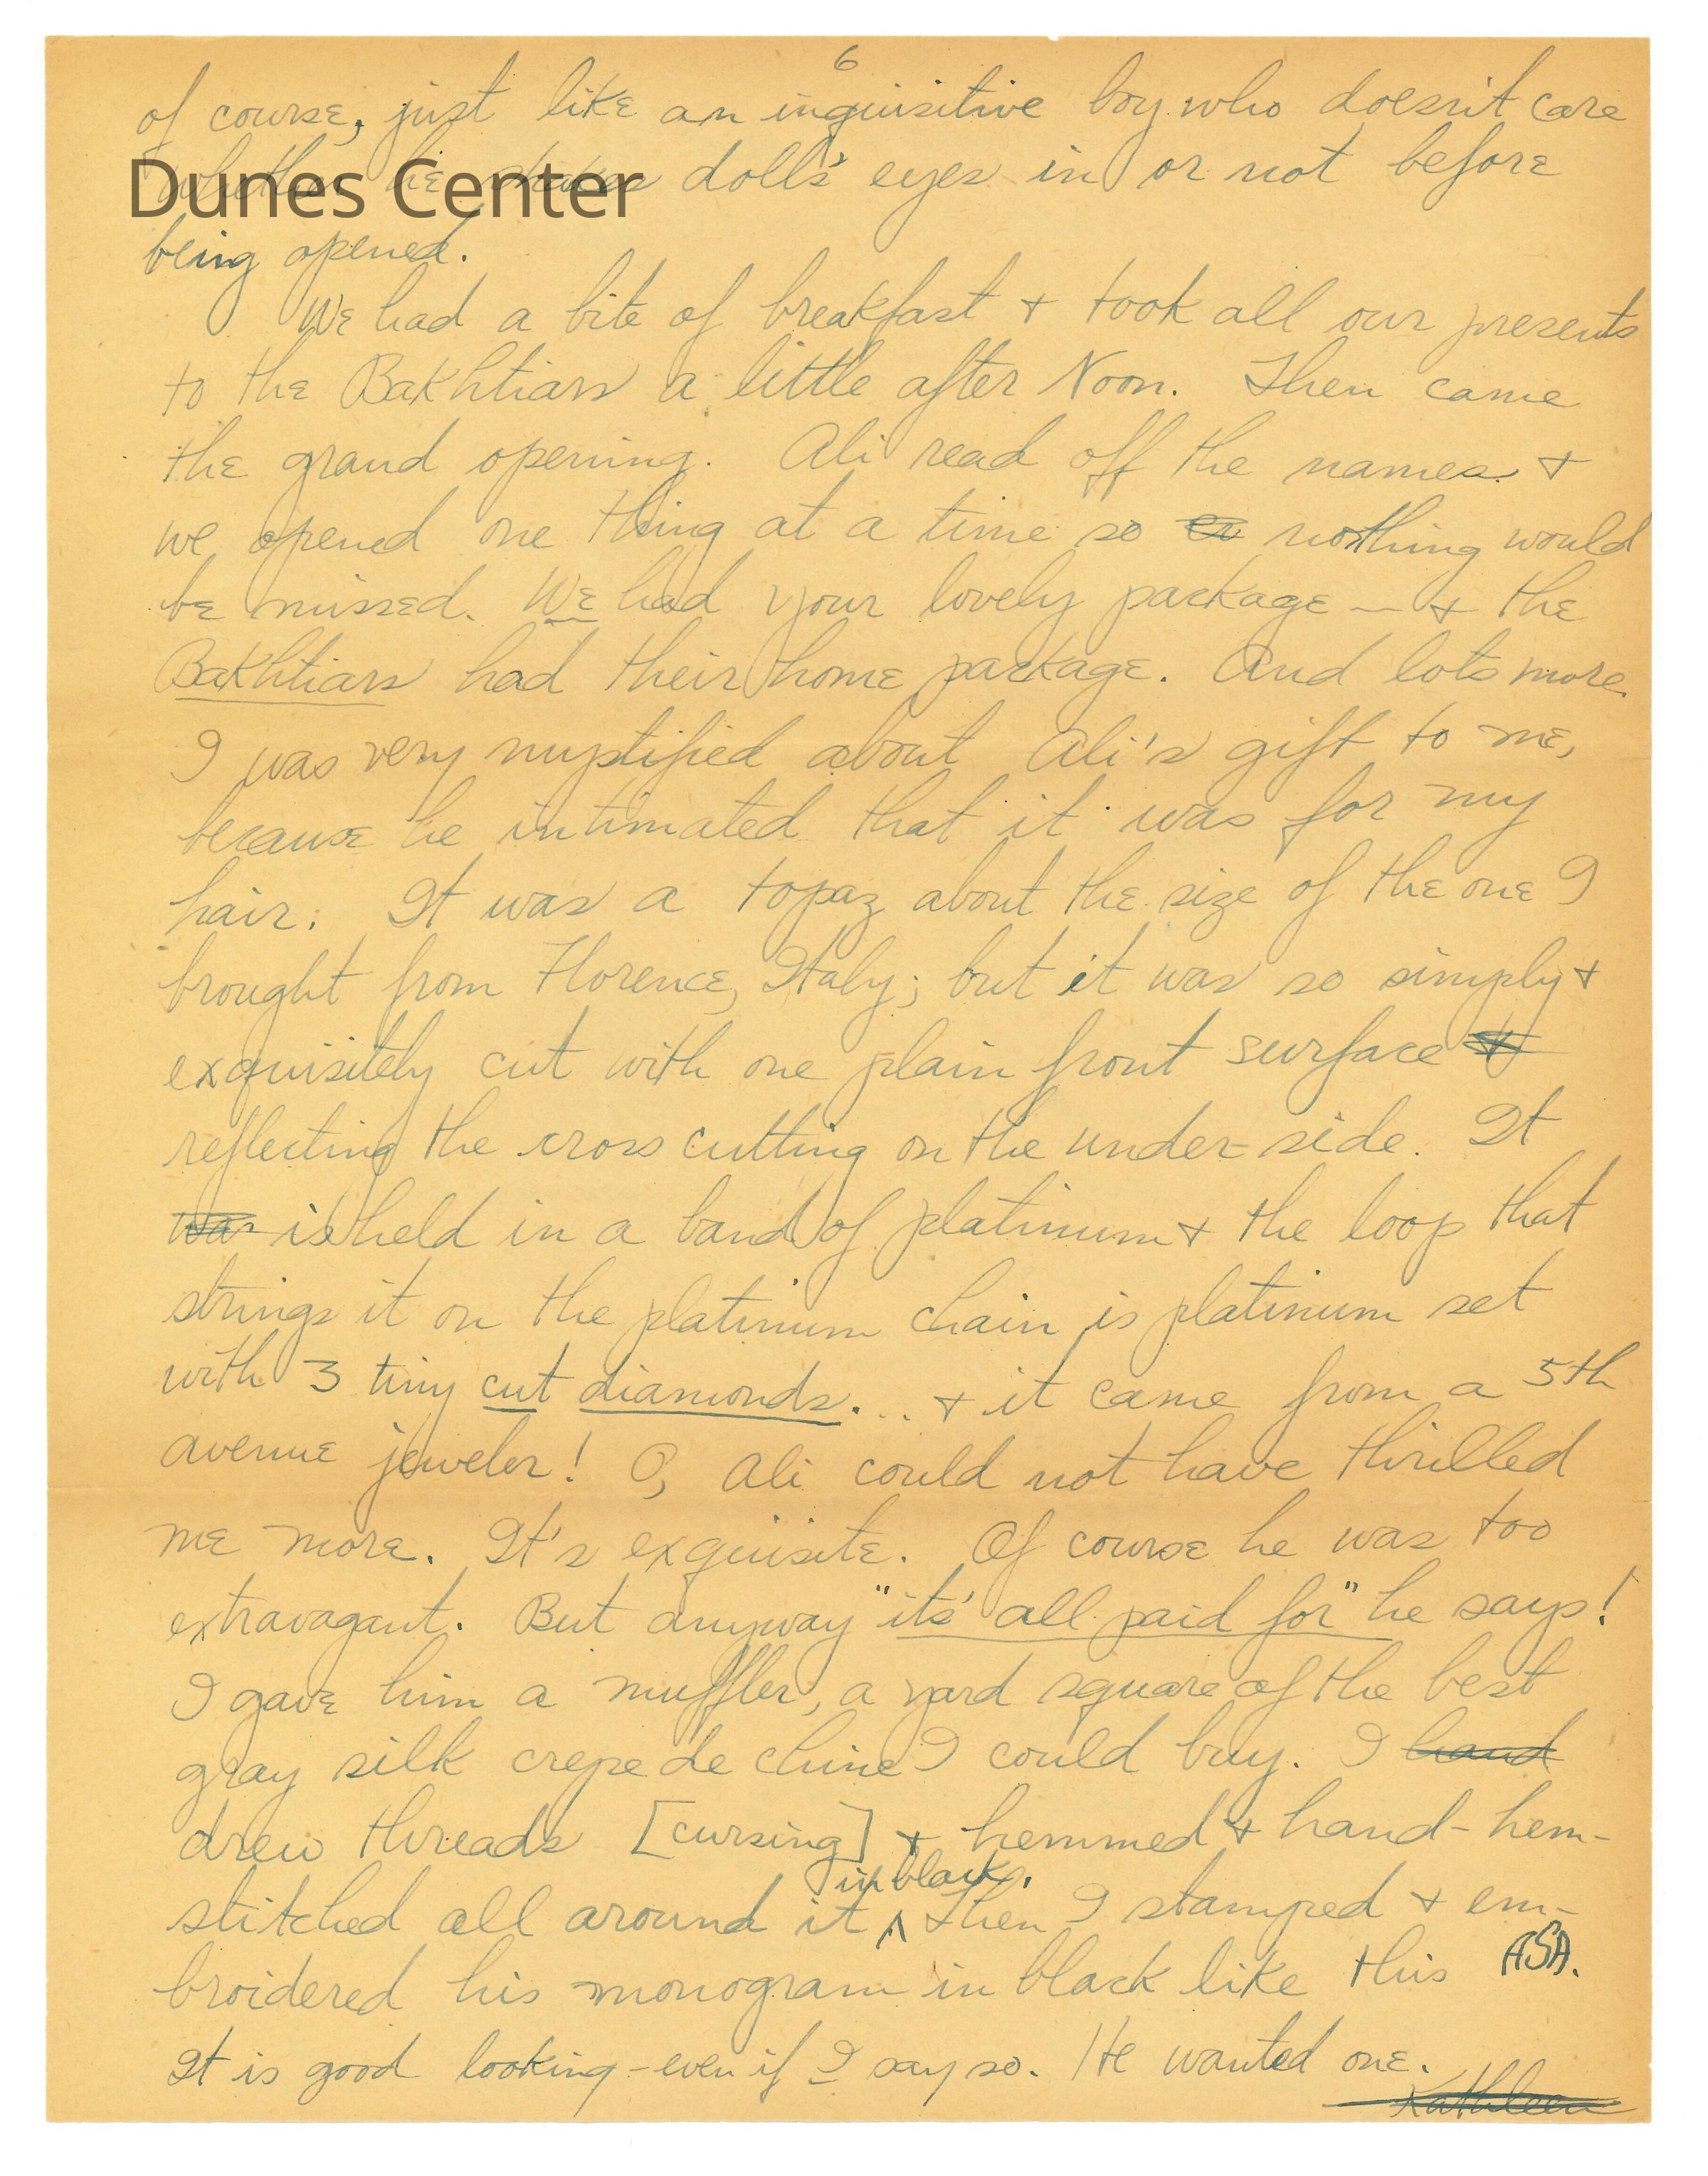 6
of course, just like an inquisitive boy who doesn't care
whether he shakes doll's eyes in or not before
Dunes Center
being opened.
We had a bite of breakfast + took all our presents
to the Bakhtiars a little after Noon. Then came
the grand opening. Ali read off the names +
we opened one thing at a time so nothing would
be missed. We had your lovely package — + the
Bakhtiars had their home package. And lots more.
I was very mystified about Ali's gift to me,
because he intimated that it was for my
hair. It was a topaz about the size of the one I
brought from Florence, Italy; but it was so simply +
exquisitely cut with one plain front surface
reflecting the cross cutting on the under-side. It
was is held in a band of platinum + the loop that
strings it on the platinum chain is platinum set
with 3 tiny cut diamonds... + it came from a 5th
avenue jeweler! O, Ali could not have thrilled
me more. It's exquisite. Of course he was too
extravagant. But anyway "its' all paid for" he says!
I gave him a muffler, a yard square of the best
gray silk crepe de chine I could buy. I hand
drew threads [cursing] + hemmed + hand-hem-
in black.
stitched all around it ^ Then I stamped + em-
broidered his monogram in black like this ASA.
It is good looking - even if I say so. He wanted one.
Kathleen